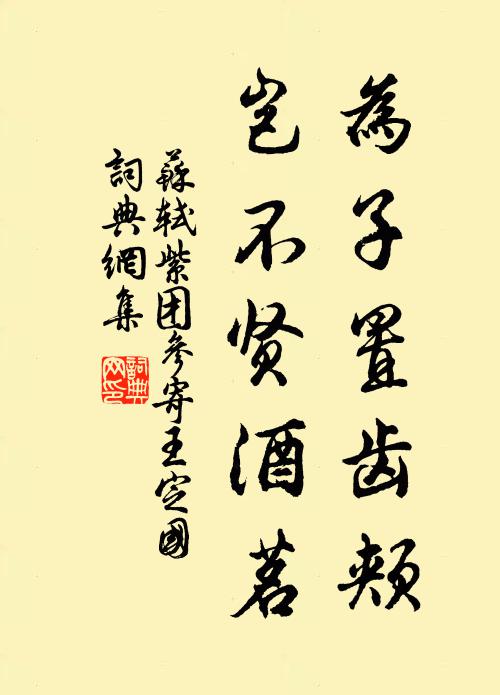 為子置齿頰
岂不贤酒茗
蘇軾紫团參寄王定國
詞典網集
詞典网印